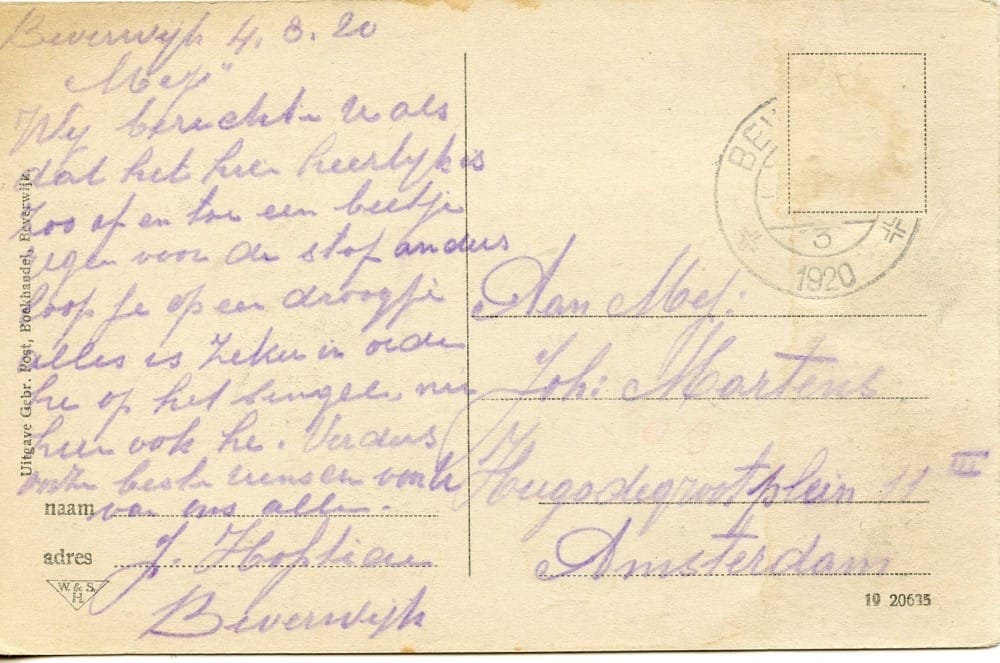 Beverwijk 4.8.20
Mej"
Wij berichte U als
dat het hier heerlijk is
zoo af en toe een beetje
regen voor de stof anders
loop je op een droogje
alles is zeker in orde
he op het Singel, nu
hier ook he. Verders
onze beste wensen voor U
van ons allen.
naam
adres
Beverwijk
Uitgave Gebr. Post, Boekhandel, Beverwijk.
W. & S.
H.
BEV
3
1920
Aan Mej:
Joh: Martens
Hugo de grootplein 11 III
Amsterdam
19 20635